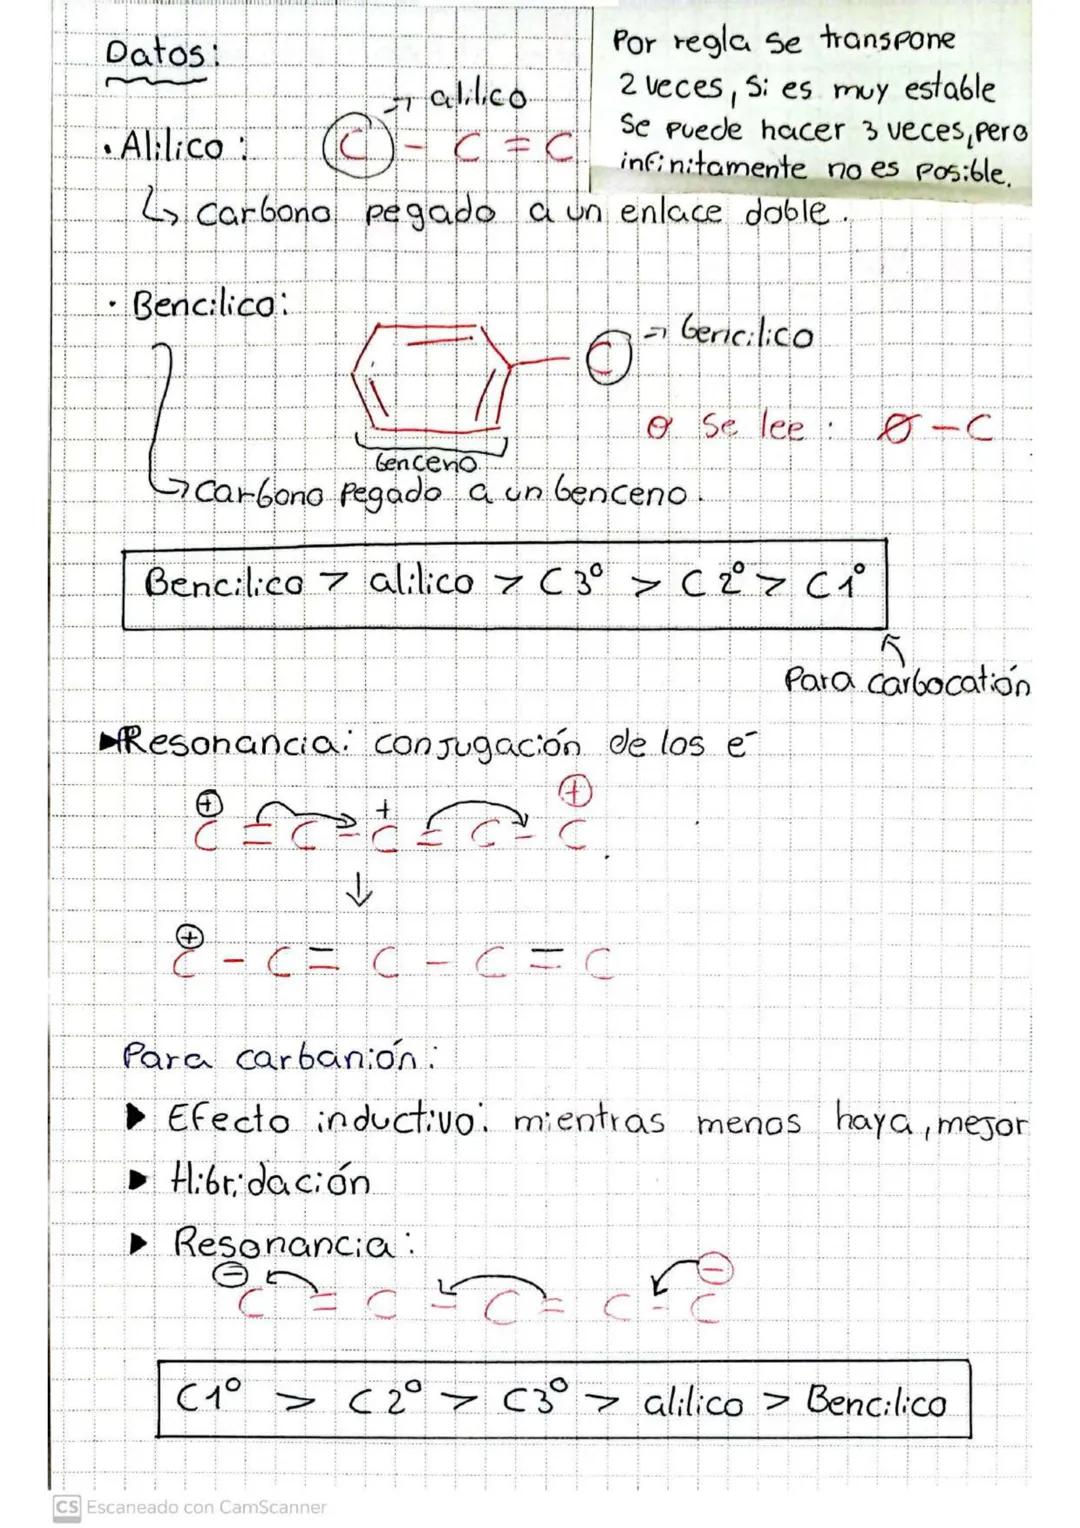 Datos:
Por regla se transpone
2 veces, si es muy estable
se puede hacer 3 veces, pero
infinitamente no es posible.
→ alilico
• Alilico: C - C = C
↳ Carbono pegado a un enlace doble.
• Bencilico:
C → bencilico
o se lee: Ø - C
benceno
↳ Carbono pegado a un benceno.
Bencilico > alilico > C 3º > C 2º > C 1º
Para carbocatión
▶ Resonancia: conjugación de los e⁻
⊕ + ⊕
C = C - C = C - C
↓
⊕
C - C = C - C = C
Para carbanión:
▶ Efecto inductivo: mientras menos haya, mejor
▶ Hibridación
▶ Resonancia:
⊖ ⊖
C = C - C = C - C
C 1º > C 2º > C3º > alilico > Bencilico
CS Escaneado con CamScanner